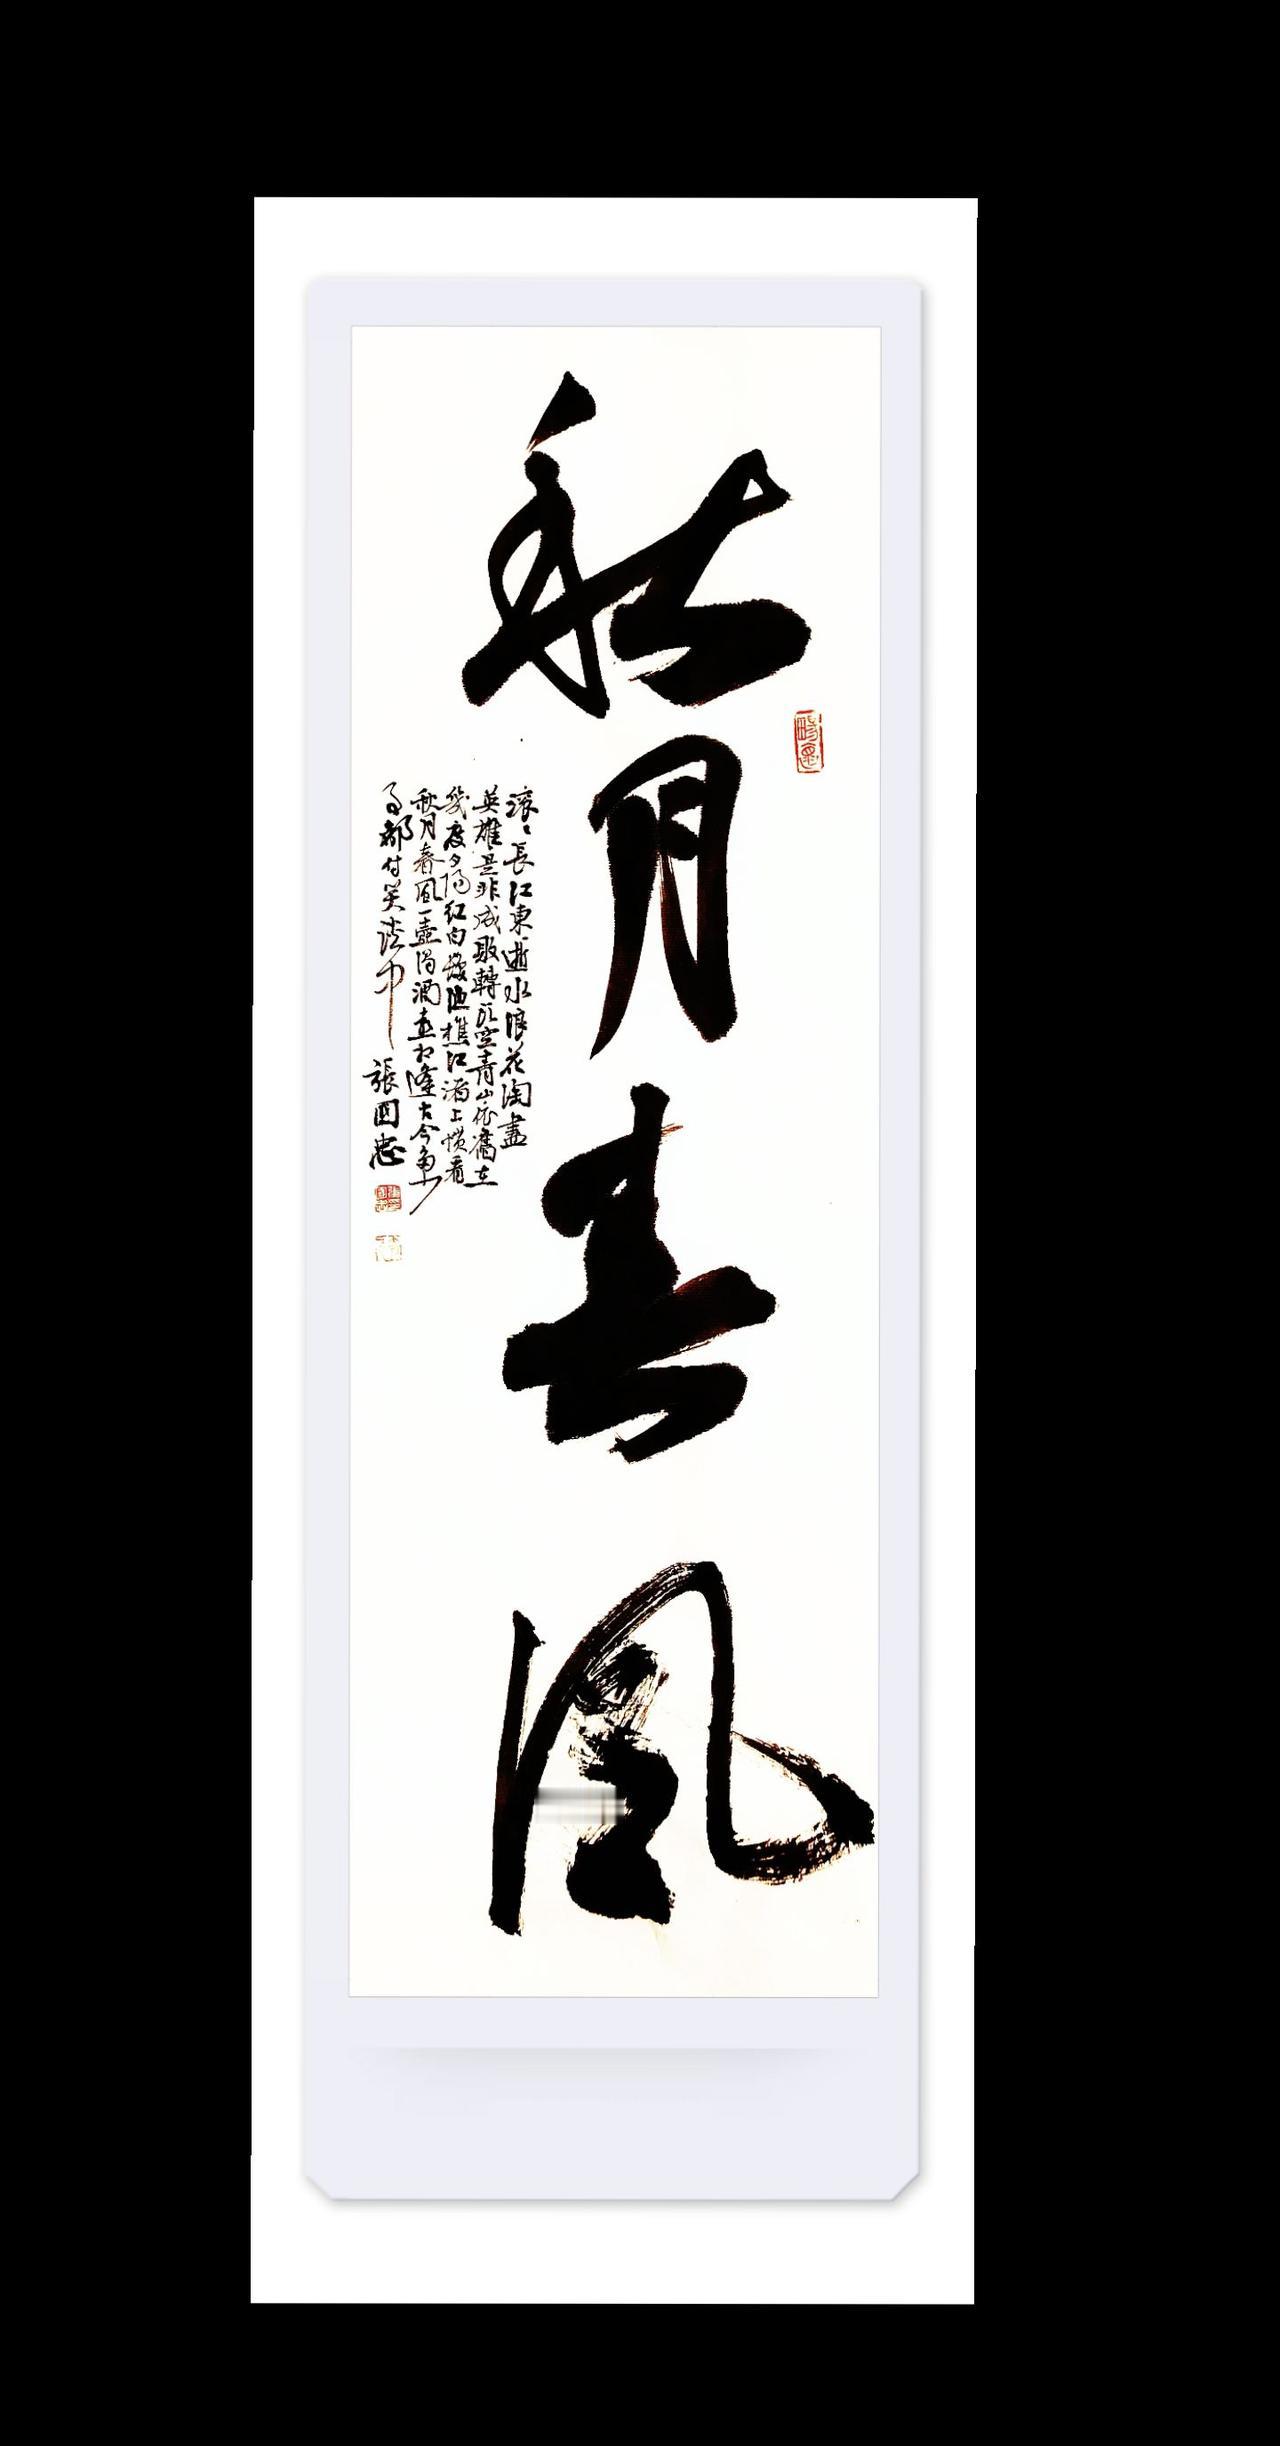 秋月春風
滚滚長江東逝水浪花淘盡
英雄是非成敗轉頭空青山依舊在
幾度夕陽紅白髮漁樵江渚上慣看
秋月春風一壺濁酒喜相逢古今多少
事都付笑談中
張國忠